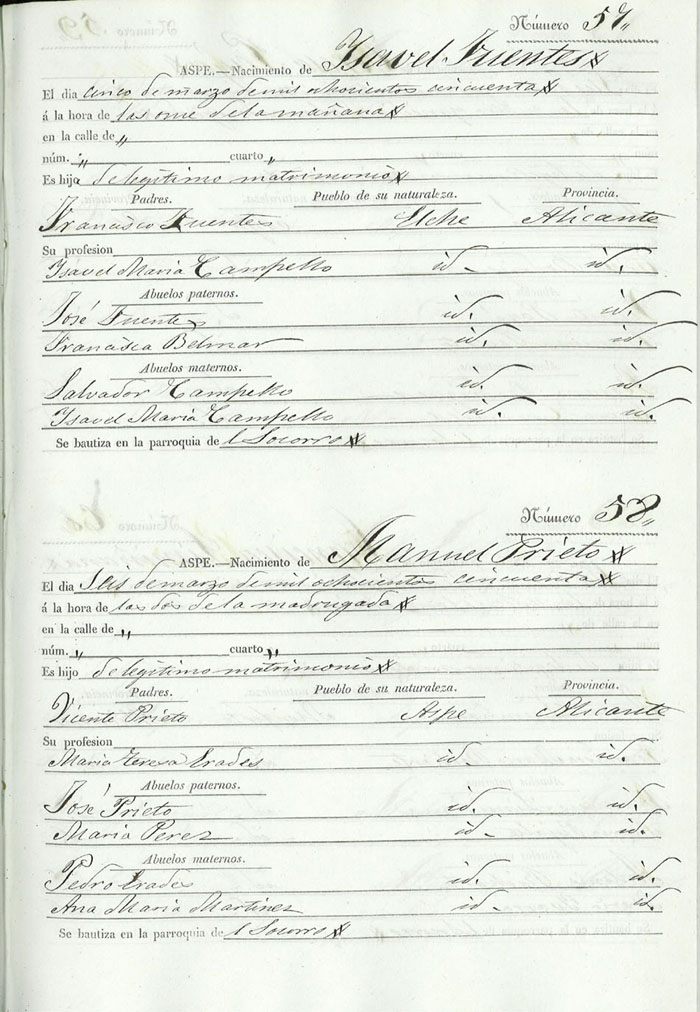 Número 57„
ASPE.—Nacimiento de Ysavel Fuentes
El dia cinco de marzo de mil ochocientos cincuenta
á la hora de las once de la mañana
en la calle de „
núm. „ cuarto „
Es hija de legítimo matrimonio
Padres. Pueblo de su naturaleza. Provincia.
Francisco Fuentes Elche Alicante
Su profesion
Ysavel Maria Campello id. id.
Abuelos paternos.
José Fuentes id. id.
Francisca Belmar id. id.
Abuelos maternos.
Salvador Campello id. id.
Ysavel Maria Campello id. id.
Se bautiza en la parroquia de l Socorro
Número 58„
ASPE.—Nacimiento de Manuel Prieto
El dia Seis de marzo de mil ochocientos cincuenta
á la hora de las dos de la madrugada
en la calle de „
núm. „ cuarto „
Es hijo de legítimo matrimonio
Padres. Pueblo de su naturaleza. Provincia.
Vicente Prieto Aspe Alicante
Su profesion
Maria Teresa Erades id. id.
Abuelos paternos.
José Prieto id. id.
Maria Perez id. id.
Abuelos maternos.
Pedro Erades id. id.
Ana Maria Martinez id. id.
Se bautiza en la parroquia de l Socorro